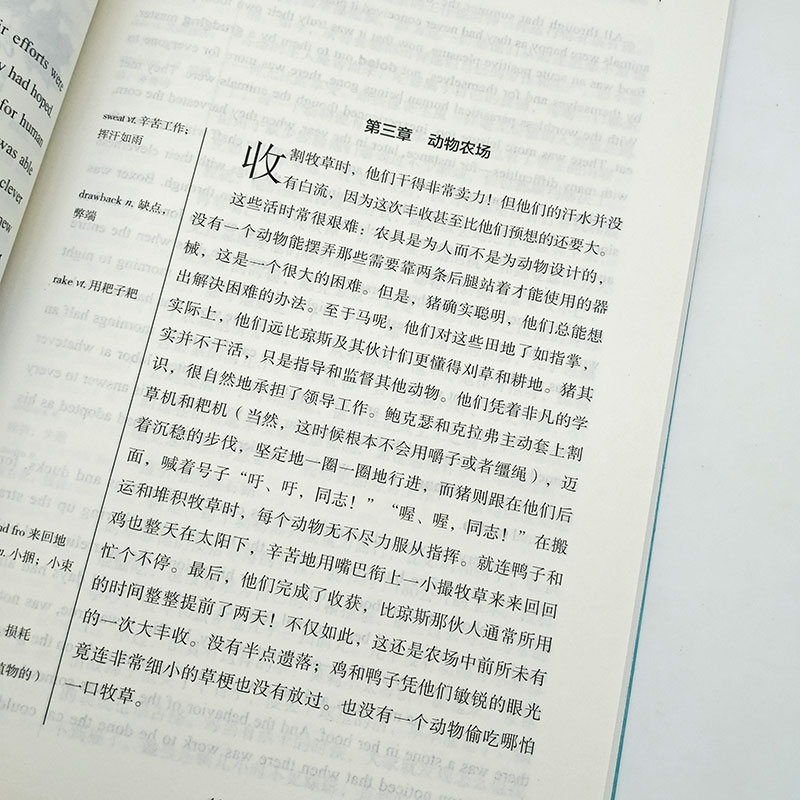 ir efforts were
y had hoped.
for human
was able
clever
new
sweat vt. 辛苦工作；
挥汗如雨
drawback n. 缺点，
弊端
rake vt. 用耙子耙
nd fro 来回地
n. 小捆；小束
损耗
植物的）
第三章 动物农场
收割牧草时，他们干得非常卖力！但他们的汗水并没
有白流，因为这次丰收甚至比他们预想的还要大。
这些活时常很艰难：农具是为人而不是为动物设计的，
没有一个动物能摆弄那些需要靠两条后腿站着才能使用的器
械，这是一个很大的困难。但是，猪确实聪明，他们总能想
出解决困难的办法。至于马呢，他们对这些田地了如指掌，
实际上，他们远比琼斯及其伙计们更懂得刈草和耕地。猪其
实并不干活，只是指导和监督其他动物。他们凭着非凡的学
识，很自然地承担了领导工作。鲍克瑟和克拉弗主动套上割
草机和耙机（当然，这时候根本不会用嚼子或者缰绳），迈
着沉稳的步伐，坚定地一圈一圈地行进，而猪则跟在他们后
面，喊着号子“吁、吁，同志！”“喔、喔，同志！”在搬
运和堆积牧草时，每个动物无不尽力服从指挥。就连鸭子和
鸡也整天在太阳下，辛苦地用嘴巴衔上一小撮牧草来来回回
忙个不停。最后，他们完成了收获，比琼斯那伙人通常所用
的时间整整提前了两天！不仅如此，这还是农场中前所未有
的一次大丰收。没有半点遗落；鸡和鸭子凭他们敏锐的眼光
竟连非常细小的草梗也没有放过。也没有一个动物偷吃哪怕
一口牧草。